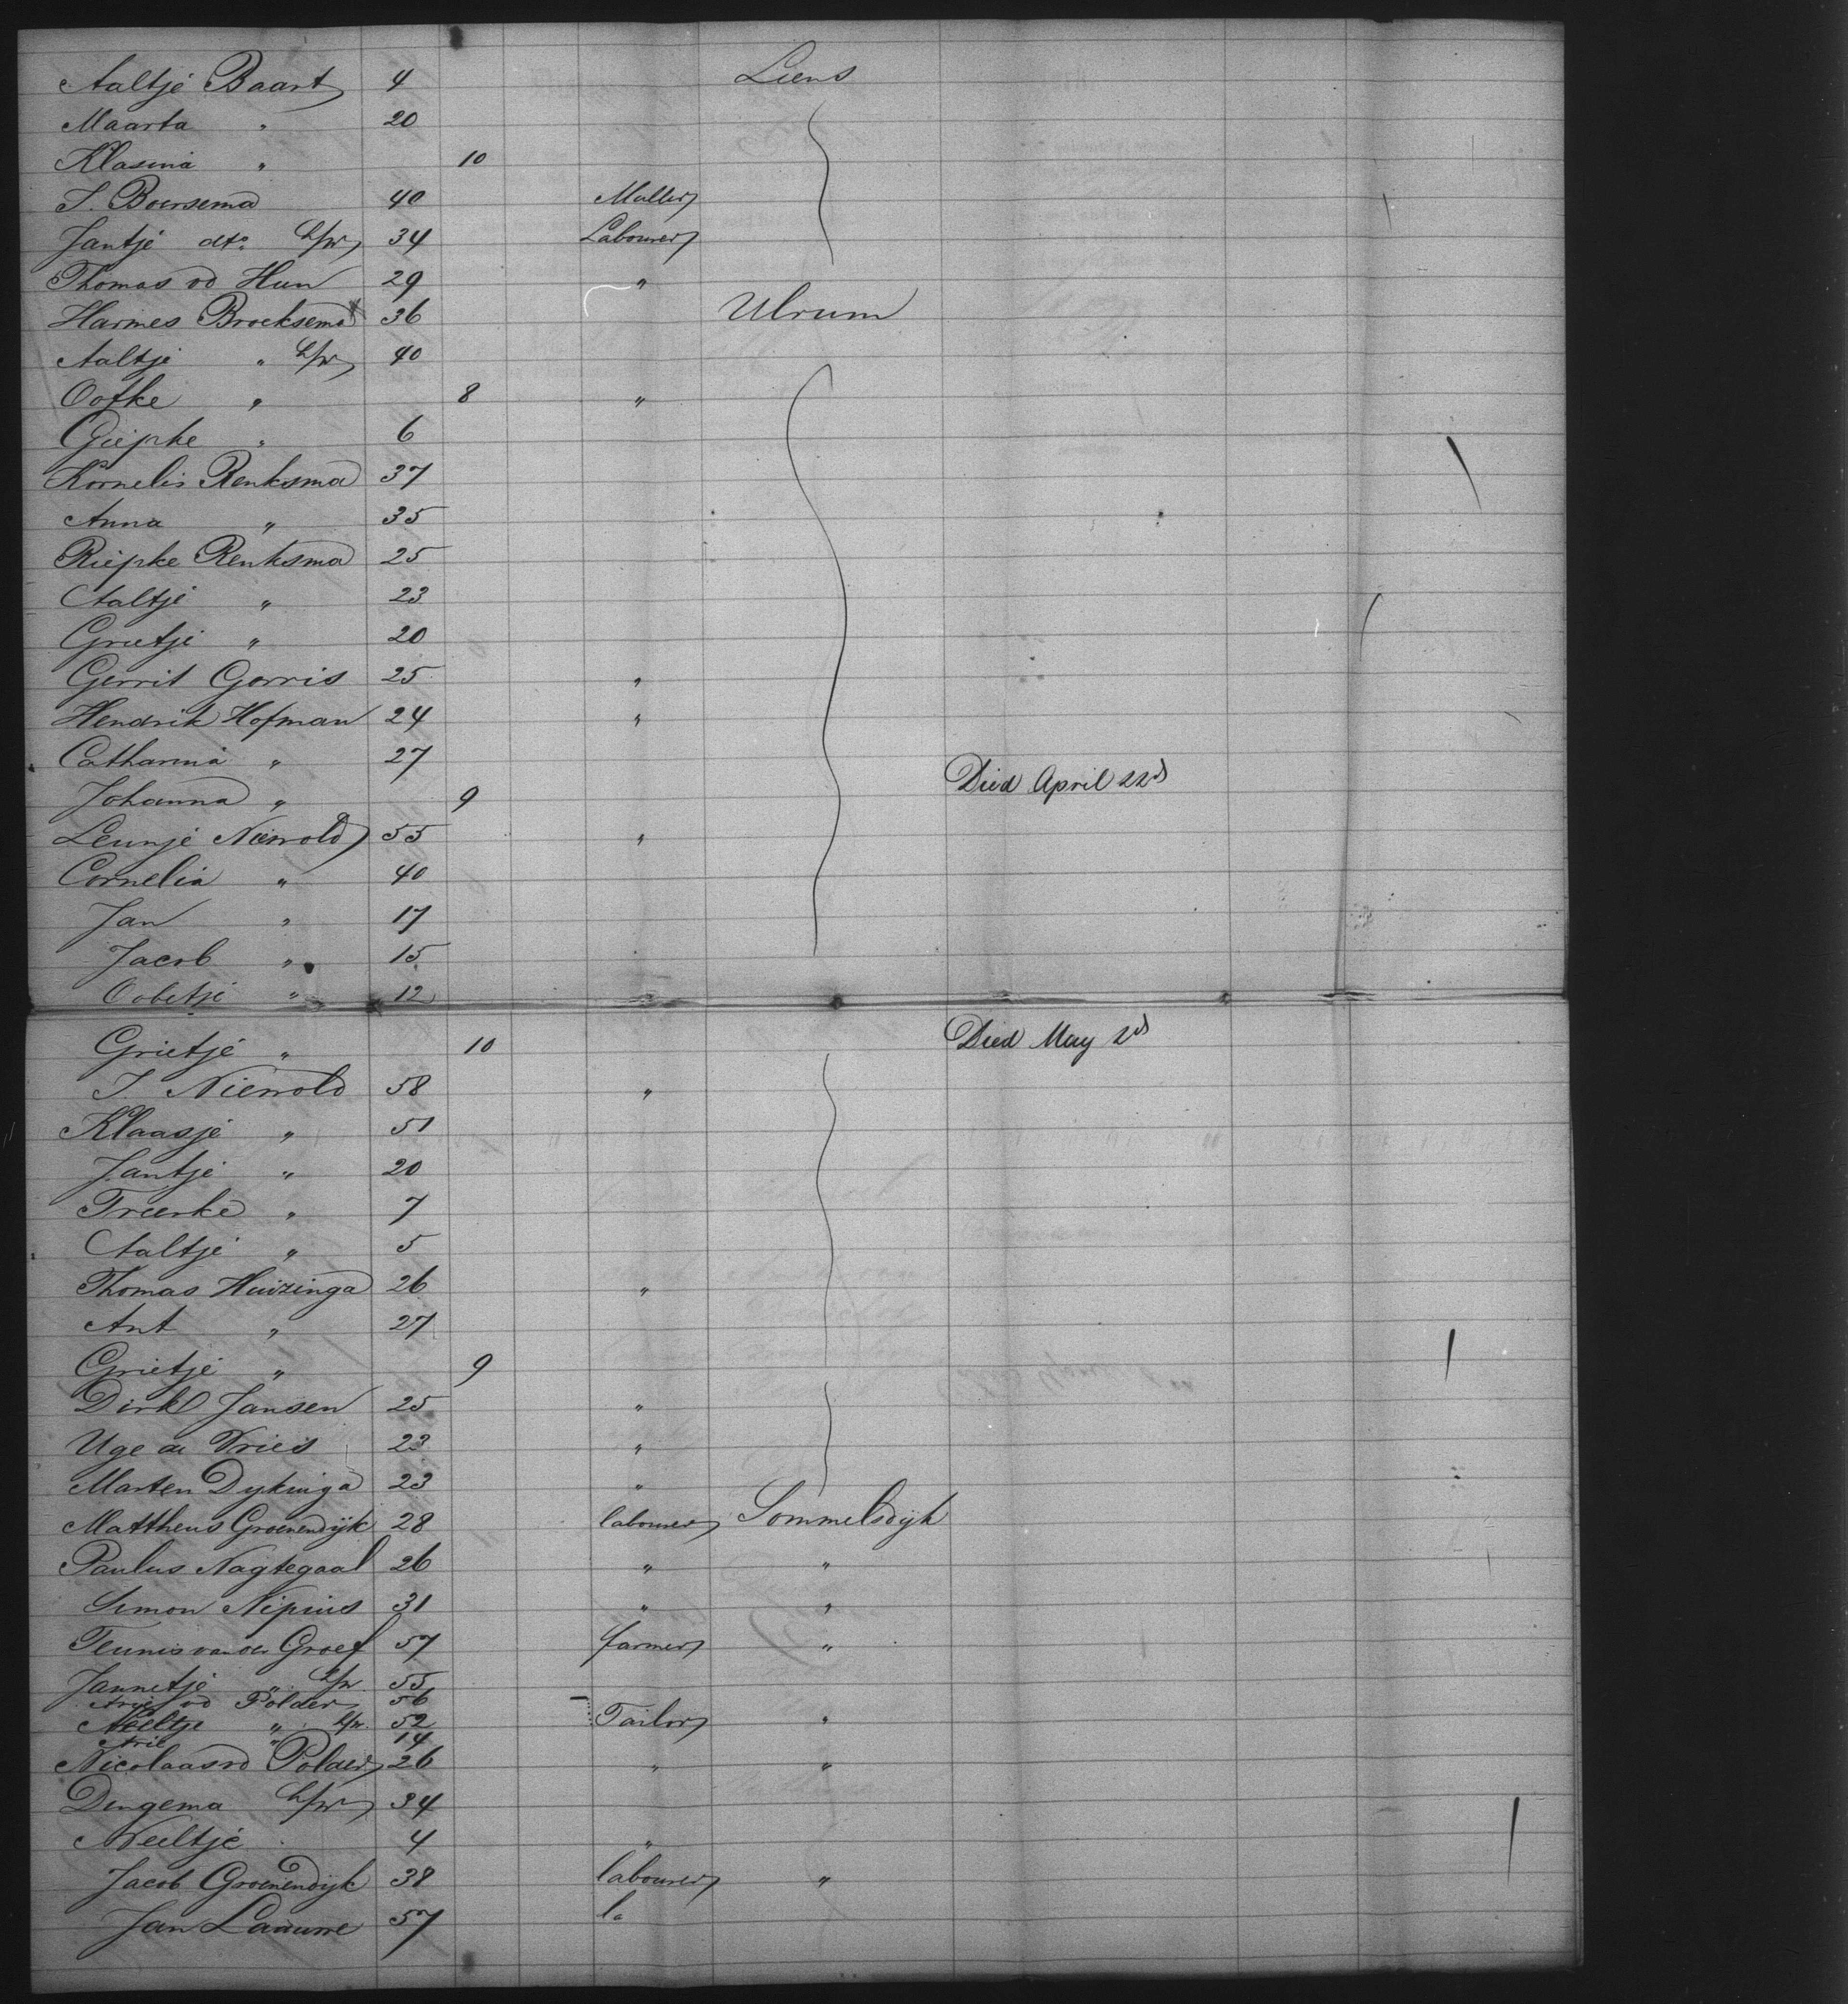 Aaltje Baart 4 Liens
Maarta " 20
Klasina " 10
S. Boersema 40 Muller
Jantje dto h/w 34 Labourer
Thomas vd Hun 29 "
Harmes Broeksema 36 Ulrum
Aaltje " h/w 40
Ootke " 8 "
Giepke " 6
Kornelis Renksma 37
Anna " 35
Riepke Renksma 25
Aaltje " 23
Grietje " 20
Gerrit Gorris 25 "
Hendrik Hofman 24 "
Catharina " 27
Johanna " 9 Died April 22d
Leunje Nienold 55 "
Cornelia " 40
Jan " 17
Jacob " 15
Oobetje " 12
Grietje " 10 Died May 2d
J Nienold 58 "
Klaasje " 51
Jantje " 20
Trienke " 7
Aaltje " 5
Thomas Huizinga 26 "
Ant " 27
Grietje " 9
Dirk Jansen 25 "
Uge de Vries 23 "
Marten Dykinga 23 "
Mattheus Groenendijk 28 labourer Sommelsdijk
Paulus Nagtegaal 26 " "
Simon Nipius 31 " "
Teunis van der Groef 57 farmer "
Jannetje " h/w. 55
Arie vd Polder 56
Neeltje " h/w. 52 Tailor "
Arie " 14
Nicolaas vd Polder 26 " "
Dingema h/w 34
Neeltje 4 "
Jacob Groenendijk 38 labourer "
Jan 57 la